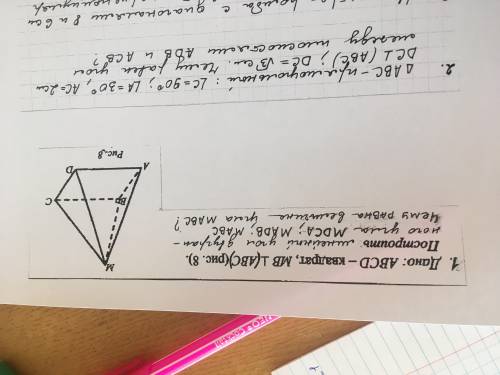 1. Дано: ABCD – квадрат, MB ⊥ (ABC) (рис. 8).
Построить: линейный угол двугран-
ного угла MDCA; MADB; MABC
Чему равна величина угла MABC?
M
B
C
D
A
Рис. 8
2. △ABC – прямоугольный: ∠C=90°; ∠A=30°, AC=2см
DC⊥(ABC); DC=√3 см. Чему равен угол
между плоскостями ADB и ACB?
ромба с диагоналями 8 и 6 см